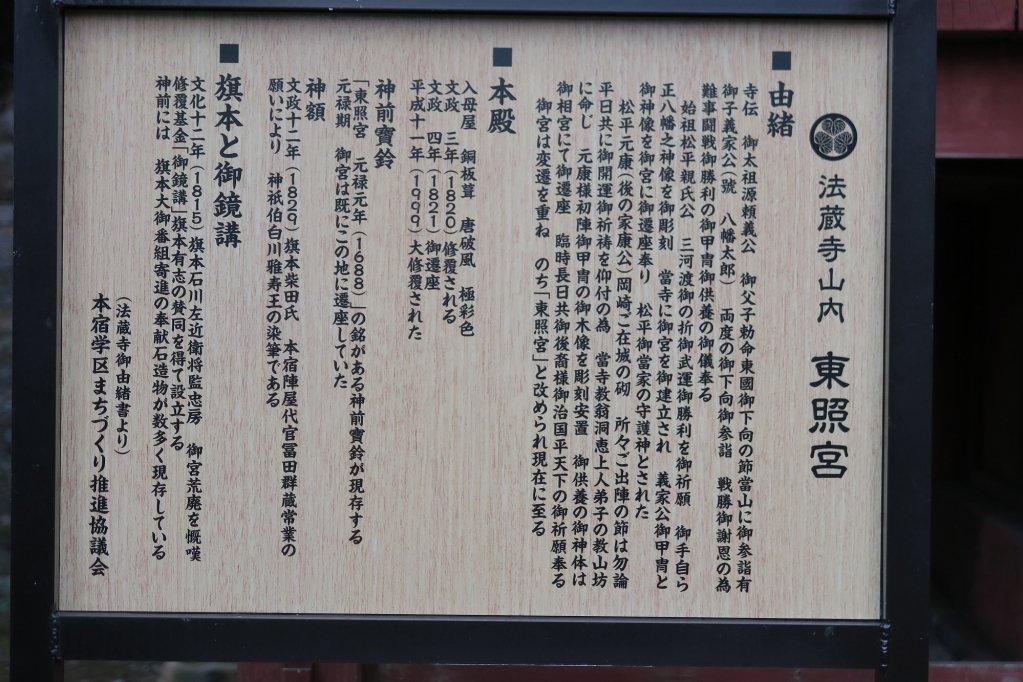 法蔵寺山内 東照宮
■由緒
寺伝 御太祖源頼義公 御父子勅命東國御下向の節當山に御参詣有
御子義家公(號 八幡太郎) 両度の御下向御参詣 戦勝御謝恩の為
難事闘戦御勝利の御甲冑御供養の御儀奉る
始祖松平親氏公 三河渡御の折御武運御勝利を御祈願 御手自ら
正八幡之神像を御彫刻 當寺に御宮を御建立され 義家公御甲冑と
御神像を御宮に御遷座奉り 松平御當家の守護神とされた
松平元康(後の家康公)岡崎ご在城の砌 所々ご出陣の節は勿論
平日共に御開運御祈祷を仰付の為 當寺教翁洞恵上人弟子の教山坊
に命じ 元康様初陣御甲冑の御木像を彫刻安置 御供養の御神体は
御相宮にて御遷座 臨時長日共御後裔様御治国平天下の御祈願奉る
御宮は変遷を重ね のち「東照宮」と改められ現在に至る
■本殿
入母屋 銅板葺 唐破風 極彩色
文政 三年(1820)修覆される
文政 四年(1821)御遷座
平成十一年(1999)大修覆された
神前寶鈴
「東照宮 元禄元年(1688)」の銘がある神前寶鈴が現存する
元禄期 御宮は既にこの地に遷座していた
神額
文政十二年(1829)旗本柴田氏 本宿陣屋代官冨田群蔵常業の
願いにより 神祇伯白川雅寿王の染筆である
■旗本と御鏡講
文化十二年(1815)旗本石川左近衛将監忠房 御宮荒廃を慨嘆
修覆基金「御鏡講」旗本有志の賛同を得て設立する
神前には 旗本大御番組寄進の奉献石造物が数多く現存している
(法蔵寺御由緒書より)
本宿学区まちづくり推進協議会